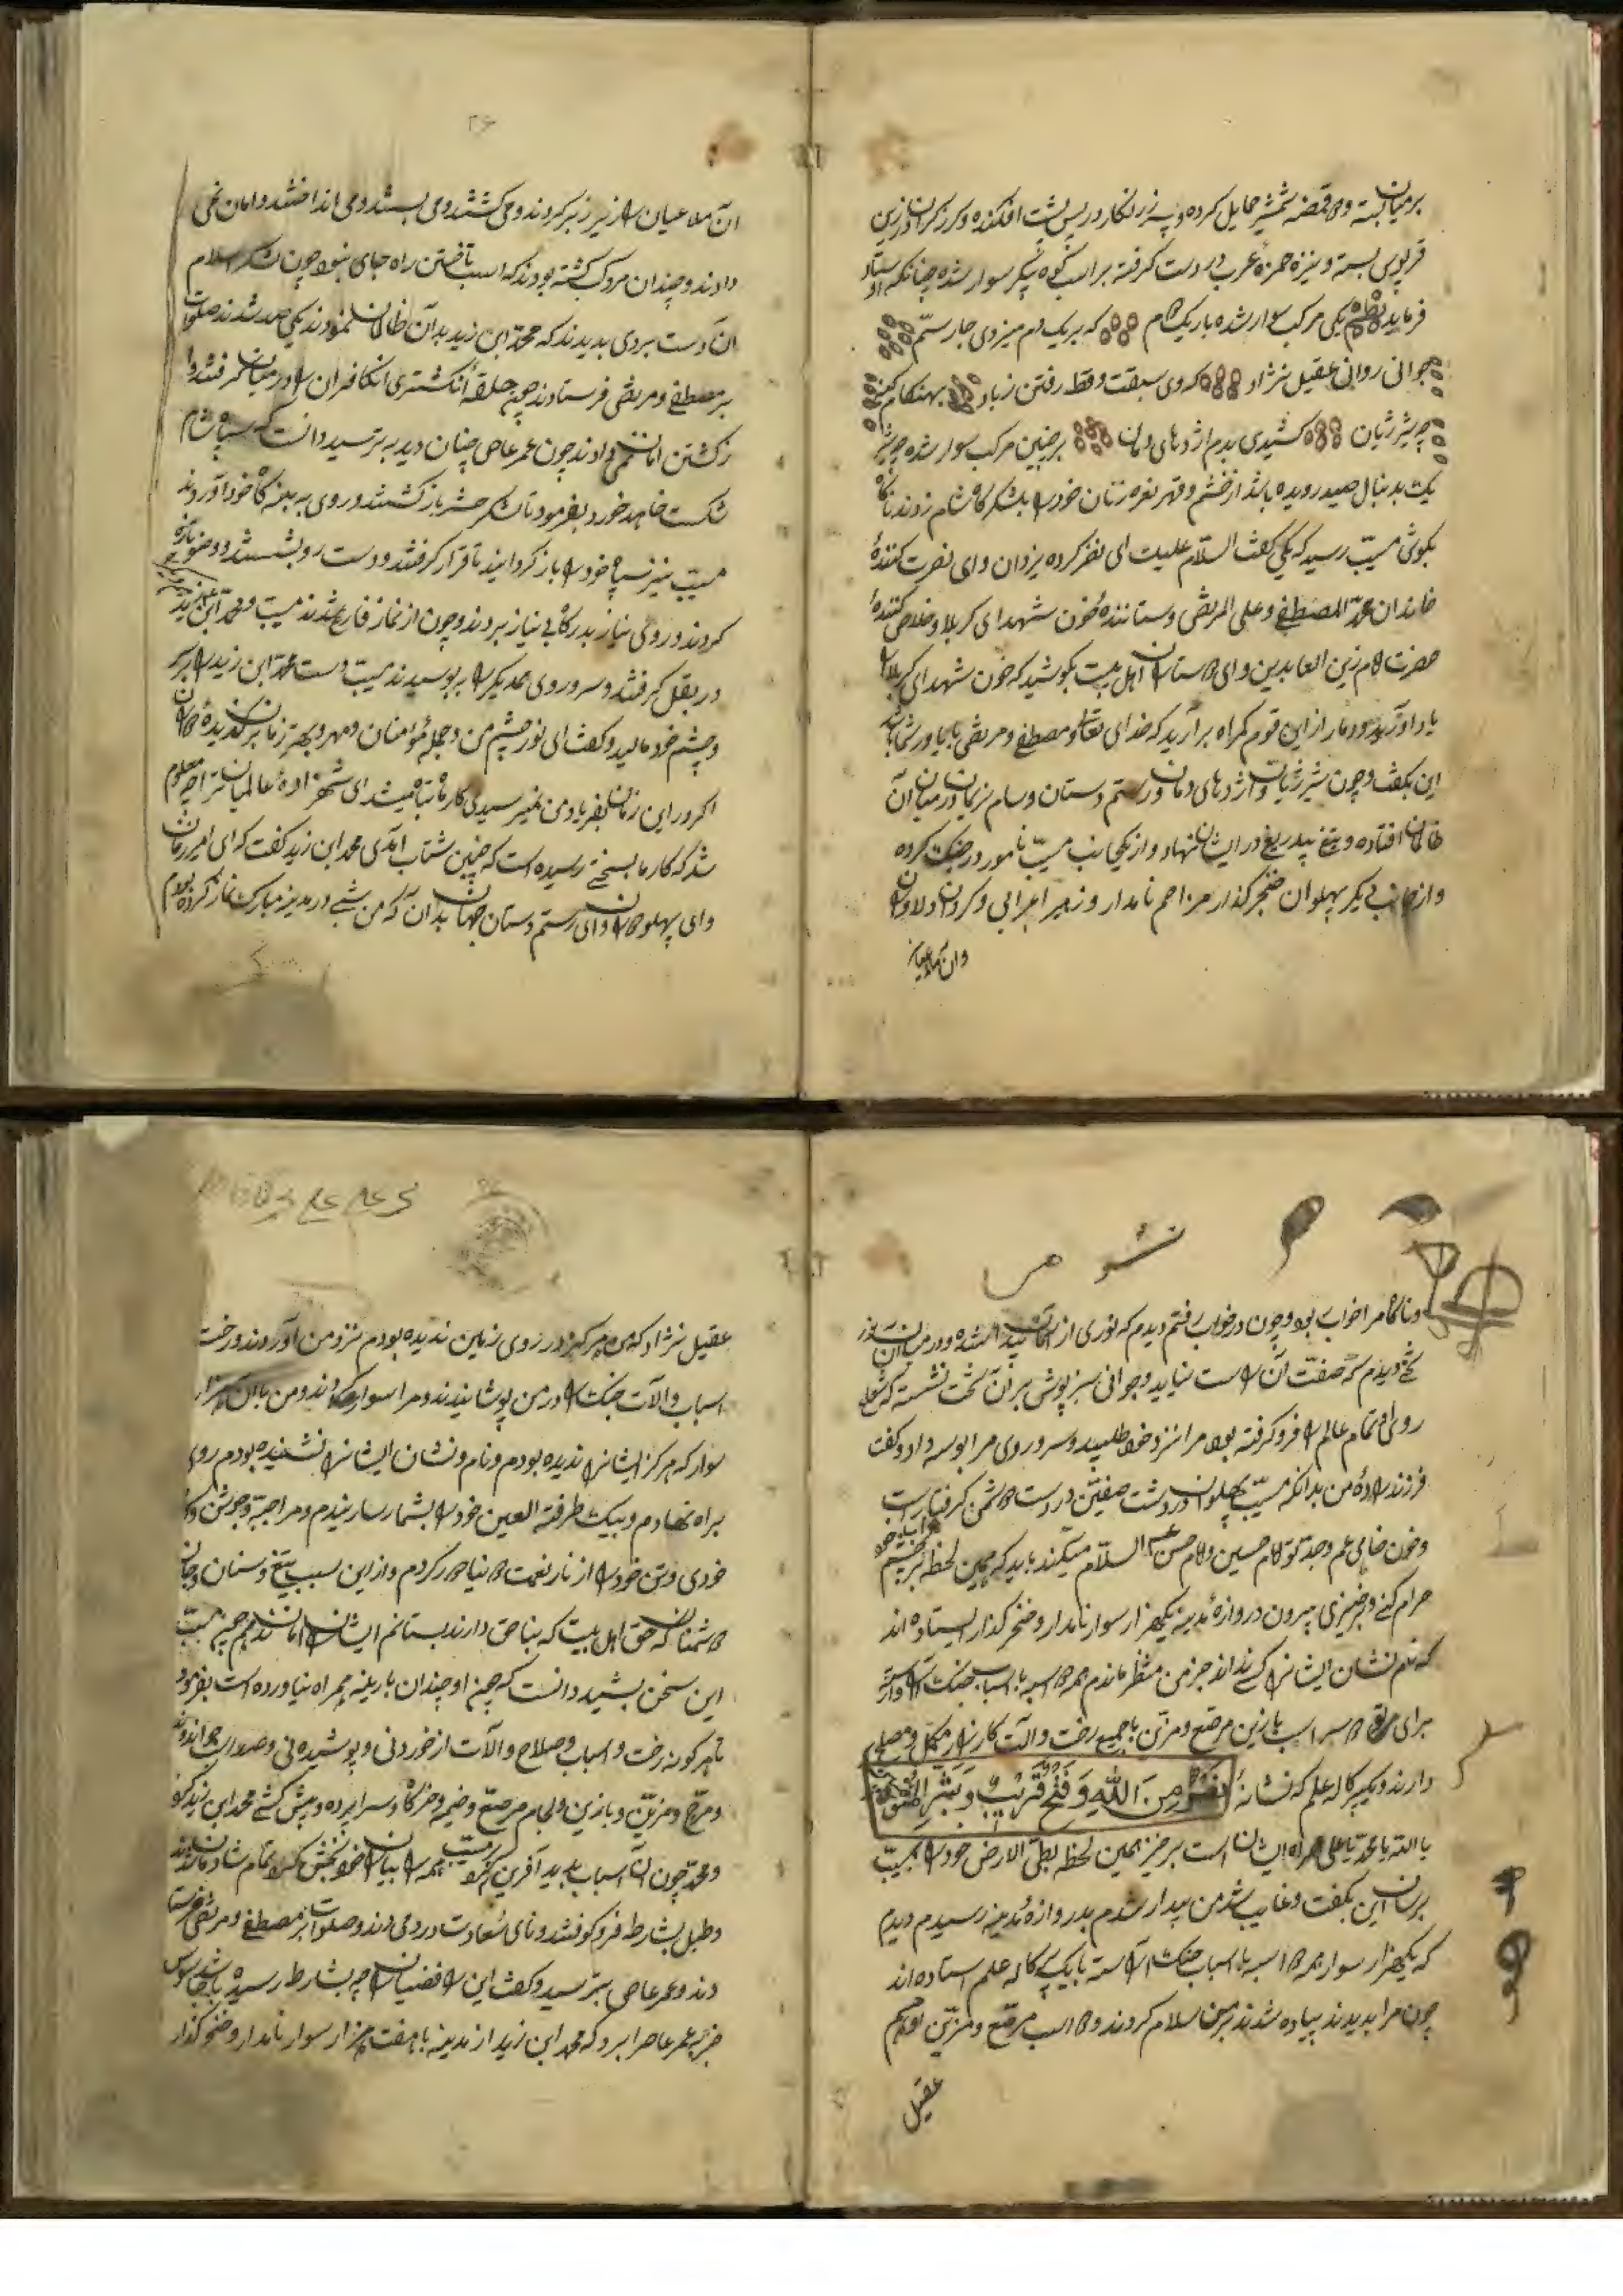 بر میان بسته و قبضه شمشیر حمایل کرده و سپر زرنگار در پس پشت افکنده و گرز گران در زین
قربوس بسته و نیزه حمزه عرب در دست گرفته بر اسب کوه پیکر سوار شده چنانکه استاد
فرماید نظم یکی مرکب سوار شده باریک کام که بر یک دم میزدی چار سم
جوانی روانی عقیل نژاد که وی سبقت وقط رفتن زیاد بهنکام
چو شیر ژیان کشیدی بدم اژدهای دمان بر چنین مرکب سوار شده چو شیر
یک بدنبال صید رویده باشد از خشم و قهر نعره زنان خود را بلشکرگاه شام زدند ناکاه
بکوش مسیب رسید که یکی گفت السلام علیک ای نظر کرده یزدان و ای نصرت کننده
خاندان محمد المصطفی و علی المرتضی و ستاننده خون شهدای کربلا و خلاص کننده
حضرت امام زین العابدین و ای دوستان اهل بیت بکوشید که خون شهدای کربلا را
یاد آورید و دمار از این قوم کمراه برآرید که خدای تعالی و مصطفی و مرتضی یار و یاور شماست
این بگفت و چون شیر ژیان و اژدهای دمان و رستم دستان و سام نریمان در میان آن
ظالمان افتاده و تیغ بیدریغ در ایشان نهاد و از یک جانب مسیب نامور در جنک کرده
و از جانب دیگر پهلوان خنجر گذار مزاحم نامدار و زهیر اعرابی و کردان دلاوران
وان ملاعیان
ان ملاعیان را زیر زبر کردند و می کشتند و می بستند و می انداختند و امان نمی
دادند و چندان مردک کشته بودند که اسب تاختن راه جای نبود چون لشکر اسلام
ان دست بردی بدیدند که محمد ابن زید بدان ظالمان نمودند یکی صد شدند صلوات
بر مصطفی و مرتضی فرستادند چون حلقه انگشتری آن کافران را در میان گرفتند و از
کشتن امان نمی دادند چون عمر عاص چنان دید بترسید دانست که سپاه شام
شکست خواهد خورد بفرمود تا لشکر حشر بازگشتند و روی به بنه گاه خود آوردند
مسیب نیز سپاه خود را باز گردانید تا قرار گرفتند و دست رو بشستند و وضو تازه
کردند و روی نیاز بدرگاه بی نیاز بردند و چون از نماز فارغ شدند مسیب و محمد ابن زید
در بغل گرفتند و سر و روی یکدیگر را ببوسیدند مسیب دست محمد ابن زید را بر سر
و چشم خود مالید و گفت ای نور چشم من و جمله مؤمنان و مهر و بهتر زمان برگزیده
اگر در این زمان بفریاد من نمیرسیدی کار ما تباه میشد ای شهزاده عالمیان ترا چه معلوم
شد که کار ما بسختی رسیده است که چنین شتاب آمدی محمد ابن زید گفت که ای امیر زمان
و ای پهلوان و ای رستم دستان جهان بدان که من شبی در مدینه مبارک نماز کرده بودم
و ناگاه مرا خواب بود و چون در خواب رفتم دیدم که نوری از آسمان پیدا شده و در میان آن نور
تختی دیدم که صفت آن راست نیاید و جوانی سبز پوش بر آن تخت نشسته که شعله
روی او تمام عالم را فرو گرفته بود مرا نزد خود طلبید و سر و روی مرا بوسه داد و گفت
فرزندزاده من بدانکه مسیب پهلوان در دشت صفین در دست دشمن گرفتار است
و خون خاهی عم و جد تو امام حسین و امام حسن علیه السلام میکند باید که همین لحظه
حرام کنی و برخیزی بیرون دروازه مدینه یکهزار سوار نامدار و خنجر گذار ایستاده اند
که نام نشان ایشان را کسی نداند جز من منتظر مانده همه با اسباب جنگ آراسته
برای تو اسب با زین مرصع و مزین با جمیع رخت و آلت کارزار مکمل و مصلح
دارند و یک پرکاله علم که نشانه نَصْرٌ مِنَ اللهِ وَ فَتْحٌ قَرِیْبٌ وَ بَشِّرِ المُؤْمِنِیْنَ
یا الله یا محمد یا علی همراه ایشان است برخیز همین لحظه بطی الارض خود را بمسیب
برسان این بگفت و غایب شد من بیدار شدم بدروازه مدینه رسیدم دیدم
که یکهزار سوار همه با اسباب جنگ آراسته با یک پرکاله علم استاده اند
چون مرا بدیدند پیاده شدند بر من سلام کردند و اسب مرصع و مزین
عقیل
عقیل نژاد که من هرگز در روی زمین ندیده بودم نزد من آوردند و رخت
اسباب و آلات جنگ را در من پوشانیدند و مرا سوار کردند و من با آن هزار
سوار که هرگز ایشان را ندیده بودم و نام و نشان ایشان را نشنیده بودم روی
براه نهادم و بیک طرفة العین خود را بشما رسانیدم و مرا جبه و جوشن و
خودی و تن خود را از ناز نعمت دنیا دور کردم و از این سبب تیغ و سنان و جان
دشمنان که حق اهل بیت که بناحق دارند بستانم ایشان را امان ندهم چون مسیب
این سخن بشنید دانست که چون او چندان بار بنه همراه نیاورده است بفرمود
تا هر گونه رخت و اسباب و صلاح و آلات از خوردنی و پوشیدنی و صد اسب
و مرصع و مزین و با زین و لجام مرصع و خیمه و خرگاه و سراپرده و پیش کشی محمد ابن زید کرد
و محمد چون آن اسباب بدید آفرین کرد همه را بیاران خود بخش کرد تمام شادمان شدند
و طبل بشارت فرو کوفتند و نای سعادت در دمیدند و صلوات بر مصطفی و مرتضی فرستا
دند و عمر عاص بترسید و گفت این رافضیان را چه بشارت رسیده باشد جاسوس
خبر بعمر عاص برد که محمد ابن زید از مدینه با هفت هزار سوار نامدار و خنجر گذار